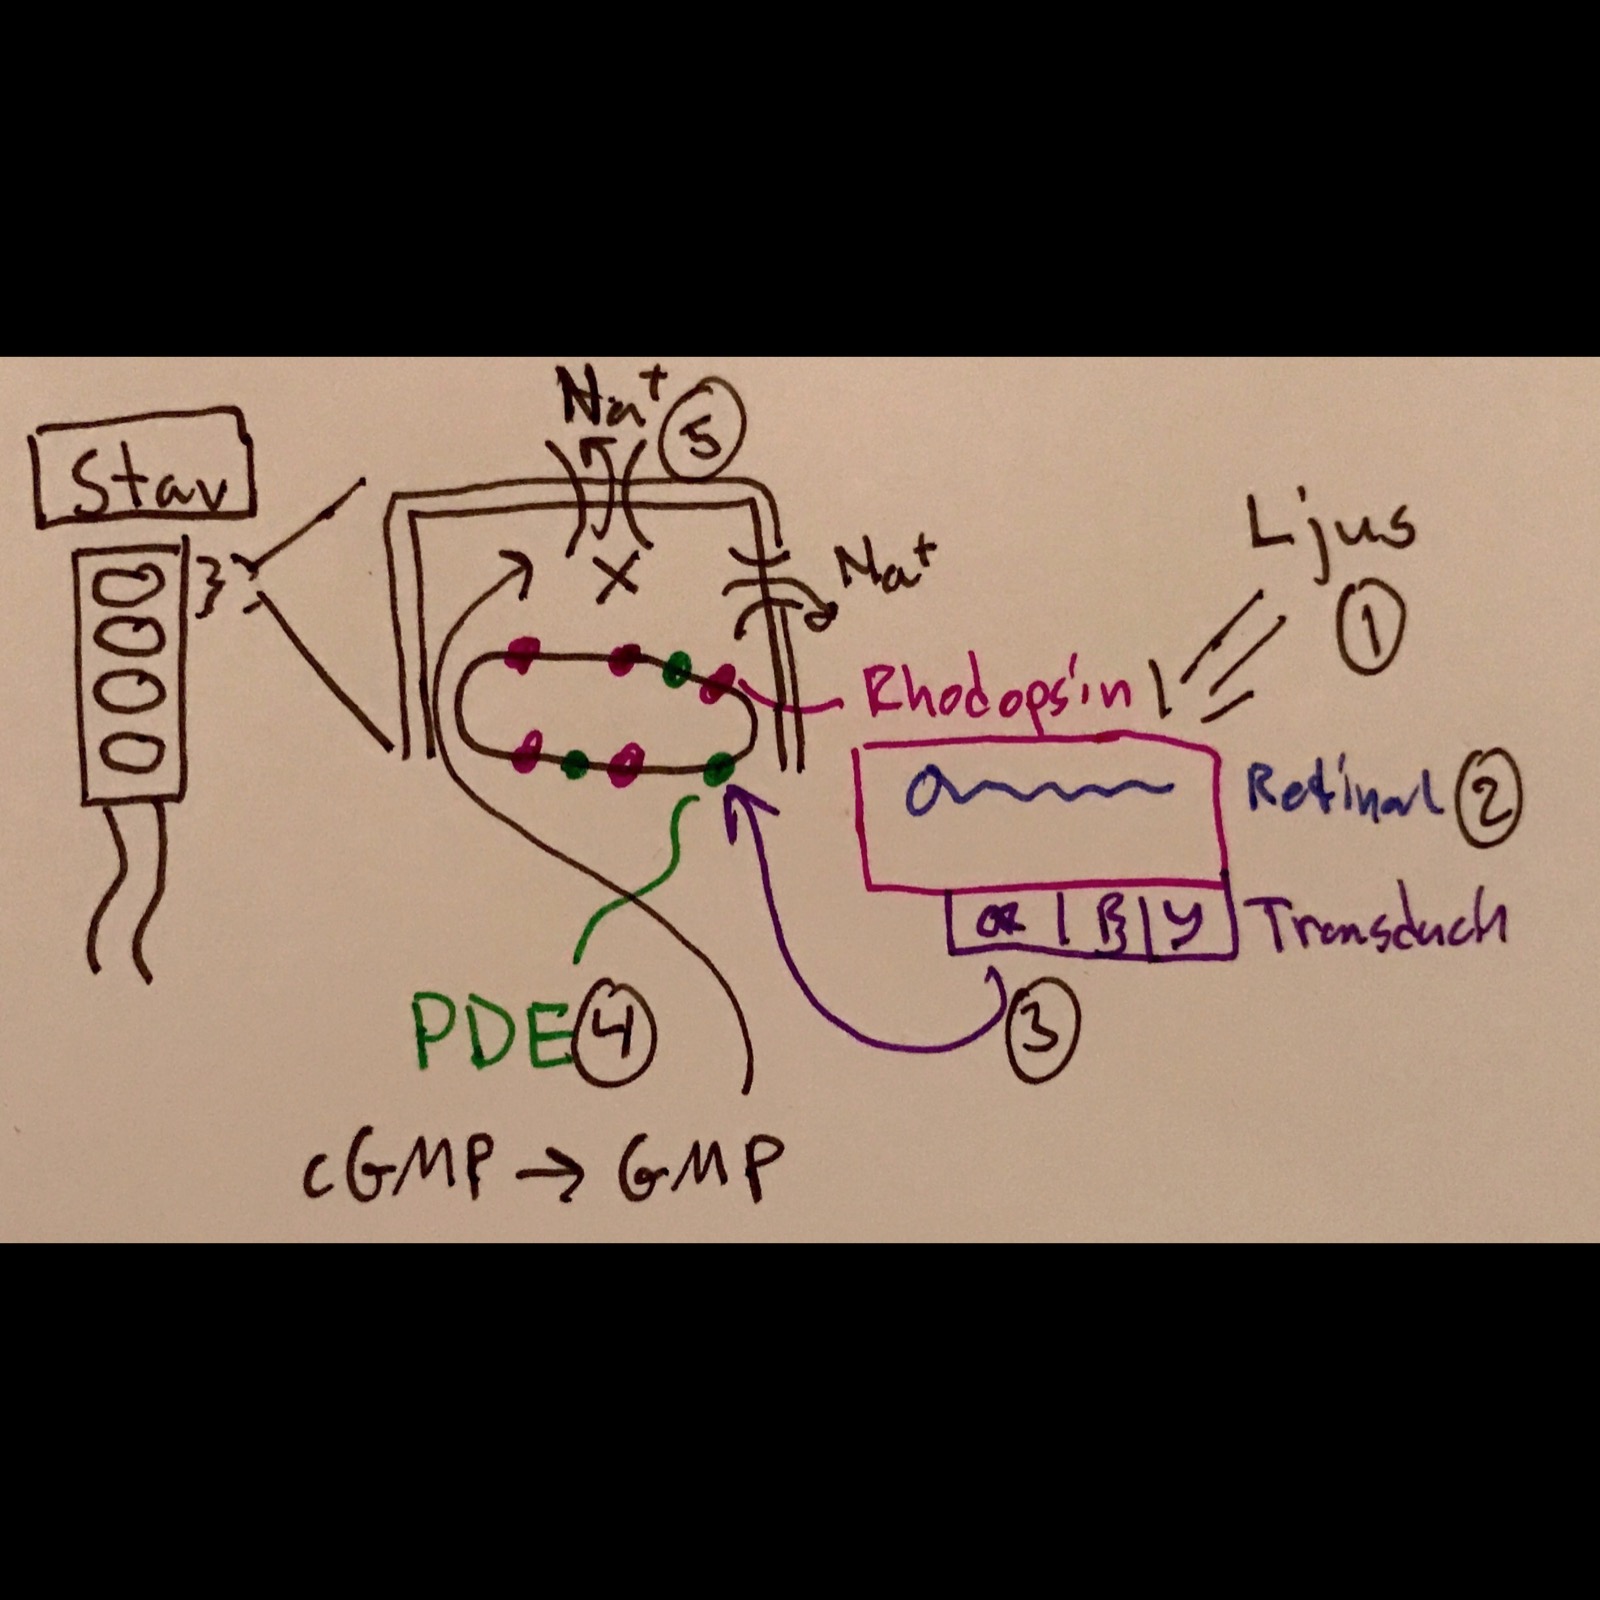 Stav
Na+ 5
Na+
Ljus
1
Rhodopsin
Retinal 2
α β γ
Transducin
3
PDE 4
cGMP → GMP